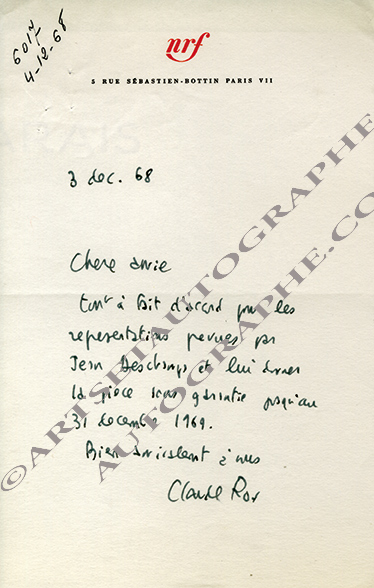 6017
4-12-68
nrf
5 RUE SÉBASTIEN-BOTTIN PARIS VII
3 dec. 68
Chere amie
Tout à fait d'accord pour les
representations prevues par
Jean Deschamps et lui donner
la pièce sans garantie jusqu'au
31 decembre 1969.
Bien amicalement à vous
Claude Roy
©ARTSETAUTOGRAPHE.COM
AUTOGRAPHE.COM